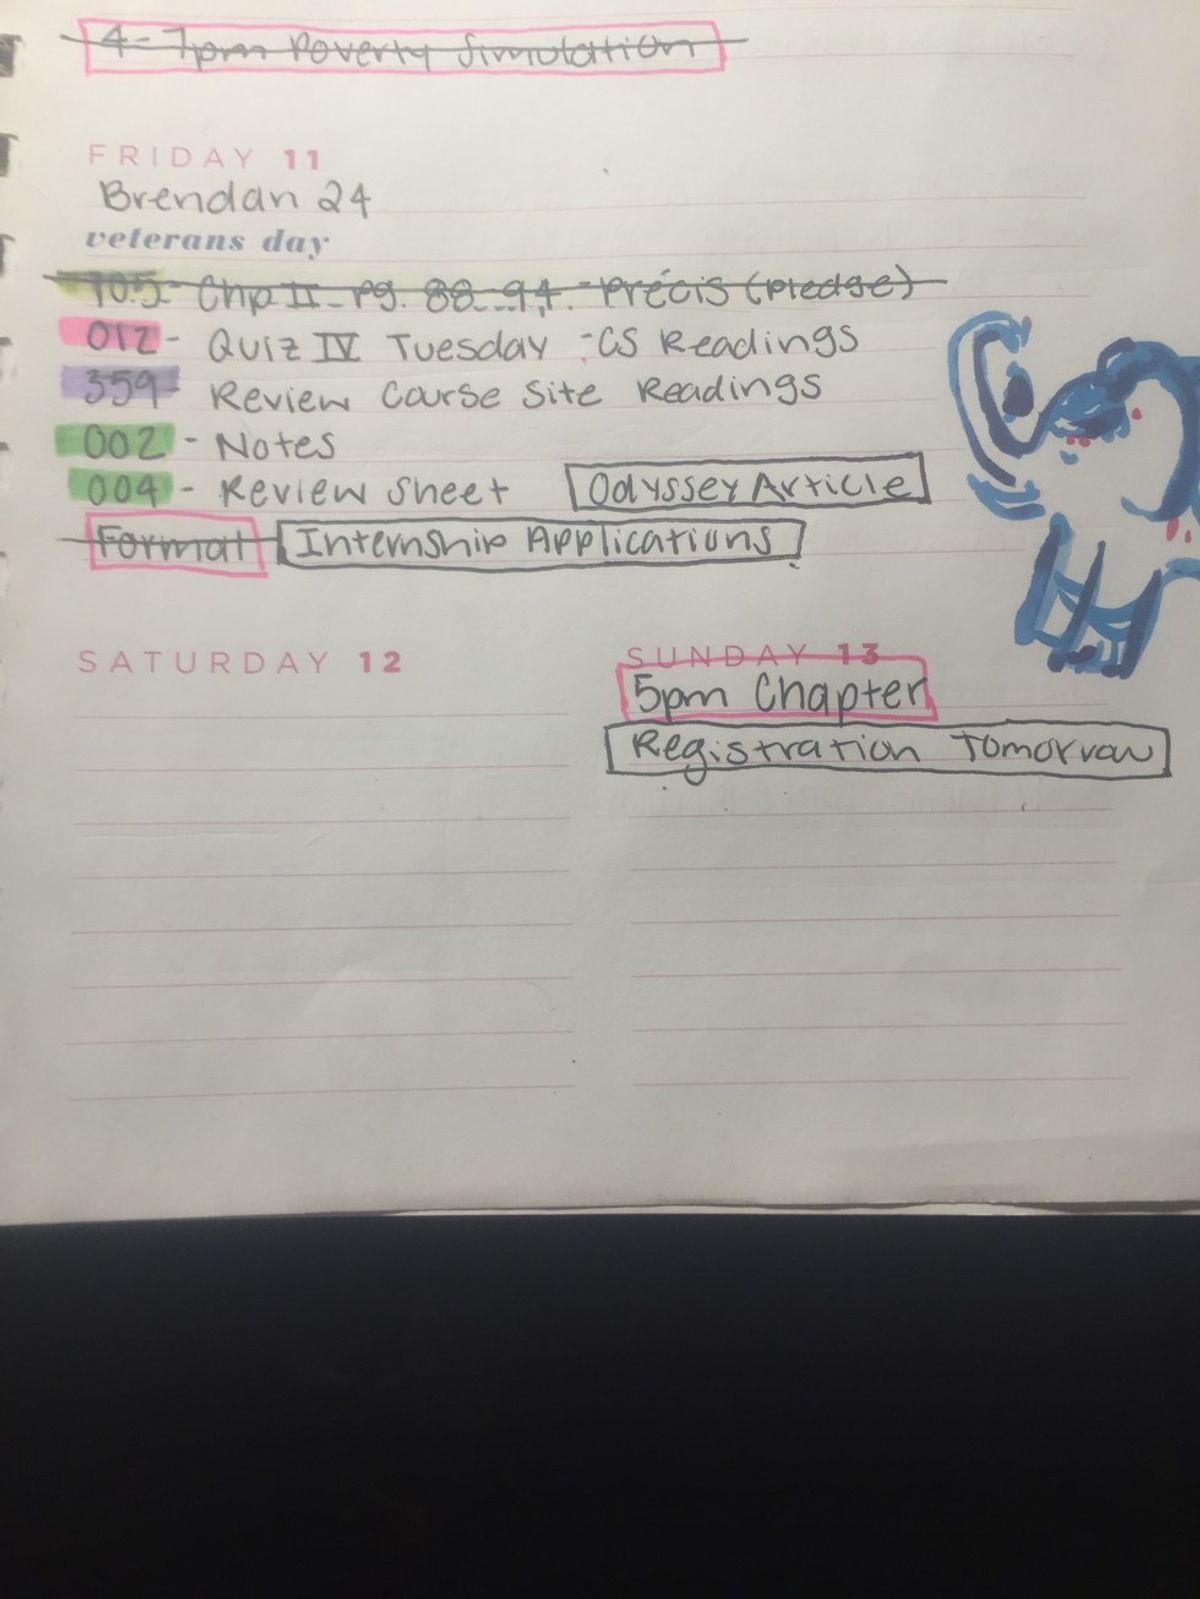 4-7pm Poverty Simulation
FRIDAY 11
Brendan 24
veterans day
105- Chp II - pg. 88-94. - Précis (pledge)
012 - Quiz IV Tuesday - CS Readings
359- Review Course Site Readings
002 - Notes
004 - Review Sheet Odyssey Article
Formal Internship Applications
SATURDAY 12
SUNDAY 13
5pm Chapter
Registration Tomorrow